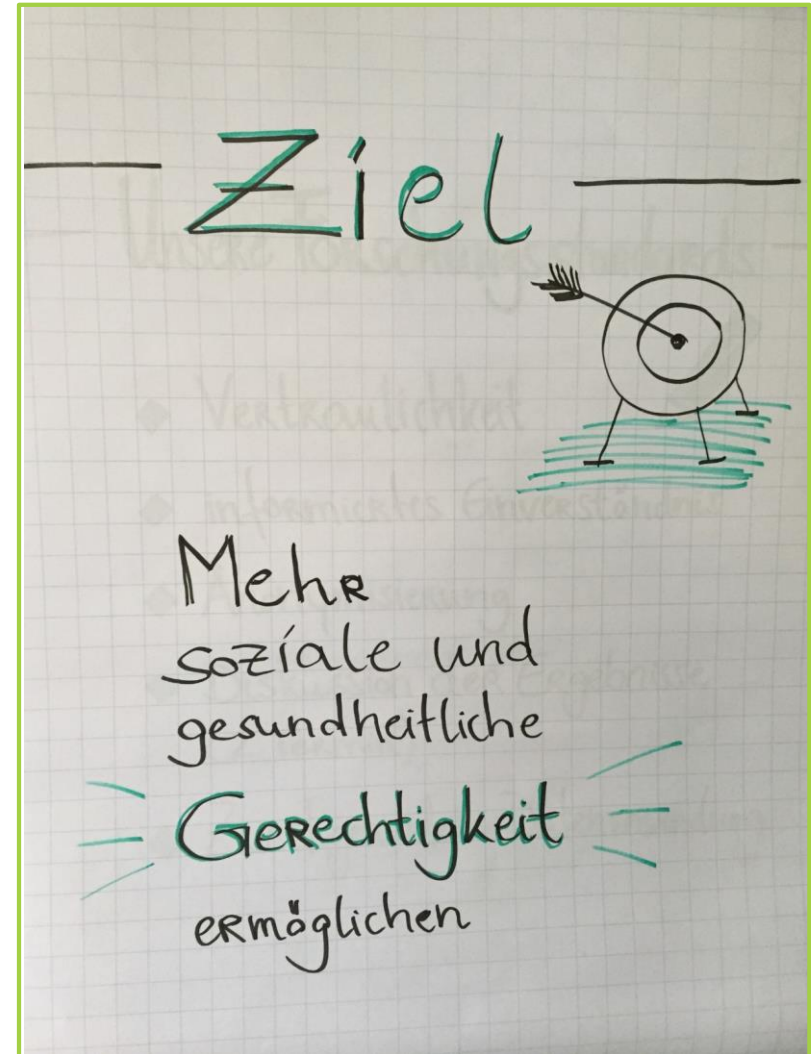 Ziel
Mehr
soziale und
gesundheitliche
Gerechtigkeit
ermöglichen